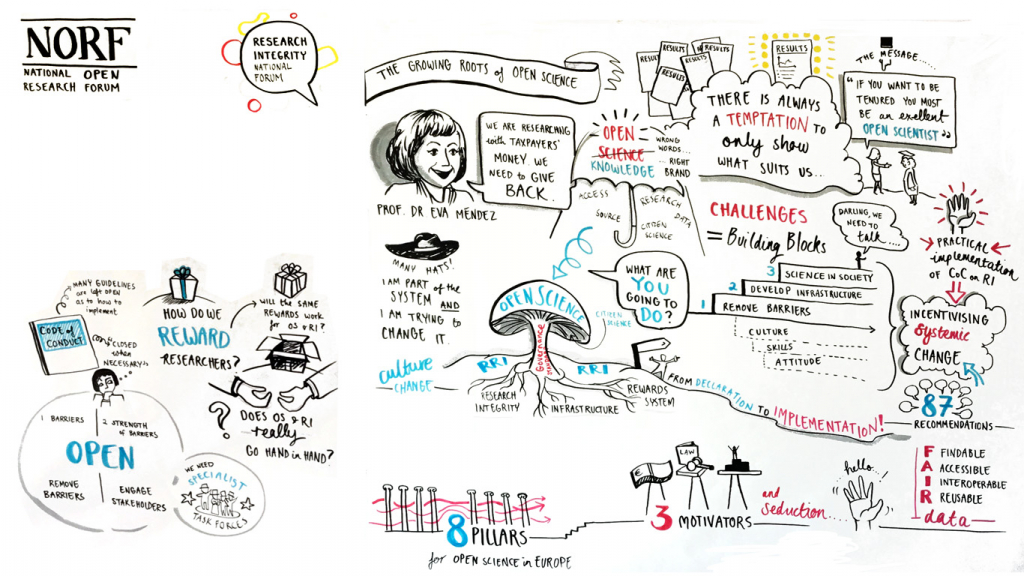 NORF
NATIONAL OPEN
RESEARCH FORUM
RESEARCH
INTEGRITY
NATIONAL
FORUM
THE GROWING ROOTS of OPEN SCIENCE
WE ARE RESEARCHING
with TAXPAYERS'
MONEY. WE
NEED to GIVE
BACK.
PROF. DR EVA MÉNDEZ
MANY HATS!
I AM PART of the
SYSTEM AND
I AM TRYING to
CHANGE IT.
culture
CHANGE
OPEN
SCIENCE
KNOWLEDGE
WRONG
WORDS...
... RIGHT
BRAND
ACCESS
SOURCE
RESEARCH
DATA
CITIZEN
SCIENCE
RESULTS
RESULTS
RESULTS
RESULTS
RESULTS
RESULTS
THERE IS ALWAYS
A TEMPTATION TO
only show
WHAT SUITS US...
THE MESSAGE
"IF YOU WANT TO BE
TENURED YOU MUST
BE an excellent
OPEN SCIENTIST"
CHALLENGES
= Building Blocks
DARLING, WE
NEED TO
talk....
3 SCIENCE IN SOCIETY
2 DEVELOP INFRASTRUCTURE
1 REMOVE BARRIERS
CULTURE
SKILLS
ATTITUDE
PRACTICAL
implementation
OF CoC on RI
INCENTIVISING
Systemic
CHANGE
87
RECOMMENDATIONS
WHAT ARE
YOU
GOING TO
DO?
OPEN SCIENCE
CITIZEN
SCIENCE
Governance
RRI
RRI
RESEARCH
INTEGRITY
INFRASTRUCTURE
REWARDS
SYSTEM
FROM DECLARATION TO IMPLEMENTATION!
MANY GUIDELINES
are left OPEN
as to how to
implement
CODE of
CONDUCT
"CLOSED
when
NECESSARY"
HOW DO WE
REWARD
RESEARCHERS?
WILL THE SAME
REWARDS WORK
for OS & RI?
?
DOES OS & RI
really
GO HAND in HAND?
1 BARRIERS
2 STRENGTH
of BARRIERS
OPEN
REMOVE
BARRIERS
ENGAGE
STAKEHOLDERS
WE NEED
SPECIALIST
TASK FORCES
8 PILLARS
for OPEN SCIENCE in EUROPE
LAW
3 MOTIVATORS
and
seduction....
hello...!
FINDABLE
ACCESSIBLE
INTEROPERABLE
REUSABLE
FAIR
data